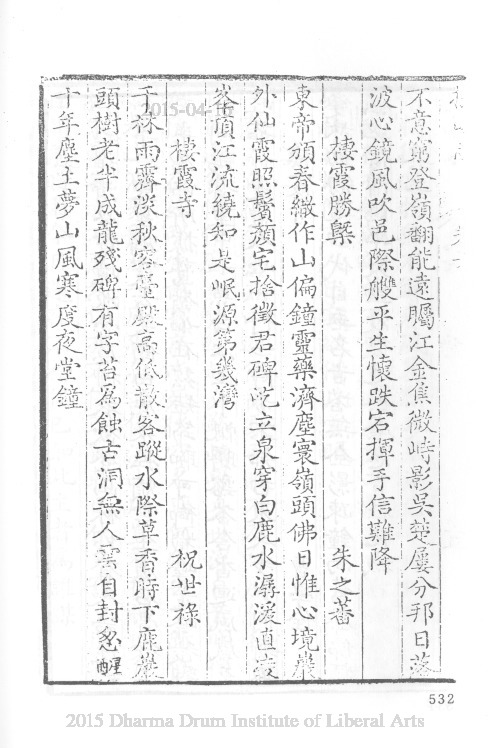 不意窮登嶺翻能遠矚江金焦微峙影吳楚屢分邦日落
波心鏡風吹邑際艭平生懷跌宕揮手信難降
棲霞勝槩　朱之蕃
東帝頒春繖作山偏鐘靈藥濟塵寰嶺頭佛日惟心境巖
外仙霞照鬢顏宅捨徵君碑屹立泉穿白鹿水潺湲直凌
峯頂江流繞知是岷源第幾灣
棲霞寺　祝世祿
千林雨霽淡秋容臺殿高低散客蹤水際草香時下鹿巖
頭樹老半成龍殘碑有字苔爲蝕古洞無人雲自封
十年塵土夢山風寒度夜堂鐘
532
2015 Dharma Drum Institute of Liberal Arts